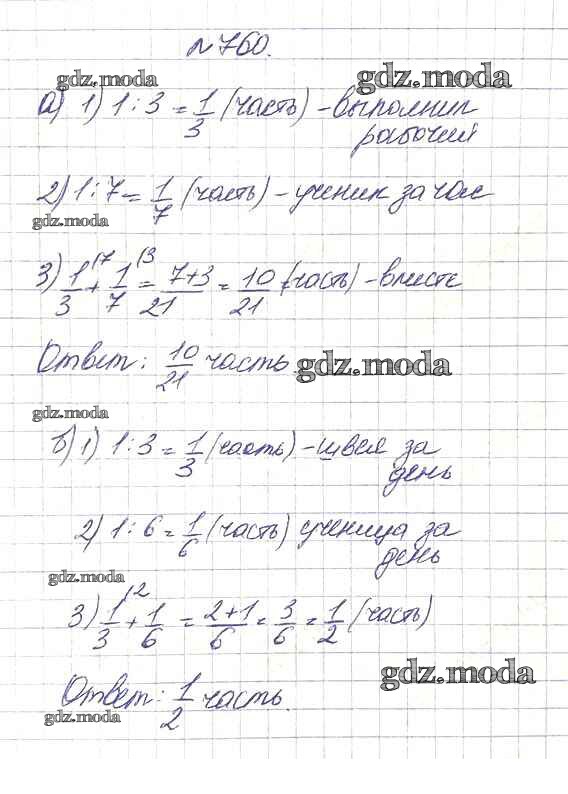 №760.
gdz.moda gdz.moda
а) 1) 1 : 3 = 1/3 (часть) - выполнил
рабочий
gdz.moda
2) 1 : 7 = 1/7 (часть) - ученик за час
gdz.moda
3) 1/3 \7 + 1/7 \3 = 7+3/21 = 10/21 (часть) - вместе
Ответ: 10/21 часть.
gdz.moda
gdz.moda
б) 1) 1 : 3 = 1/3 (часть) - швея за
день
gdz.moda
2) 1 : 6 = 1/6 (часть) ученица за
день
gdz.moda
3) 1/3 \2 + 1/6 = 2+1/6 = 3/6 = 1/2 (часть)
gdz.moda
Ответ: 1/2 часть.
gdz.moda